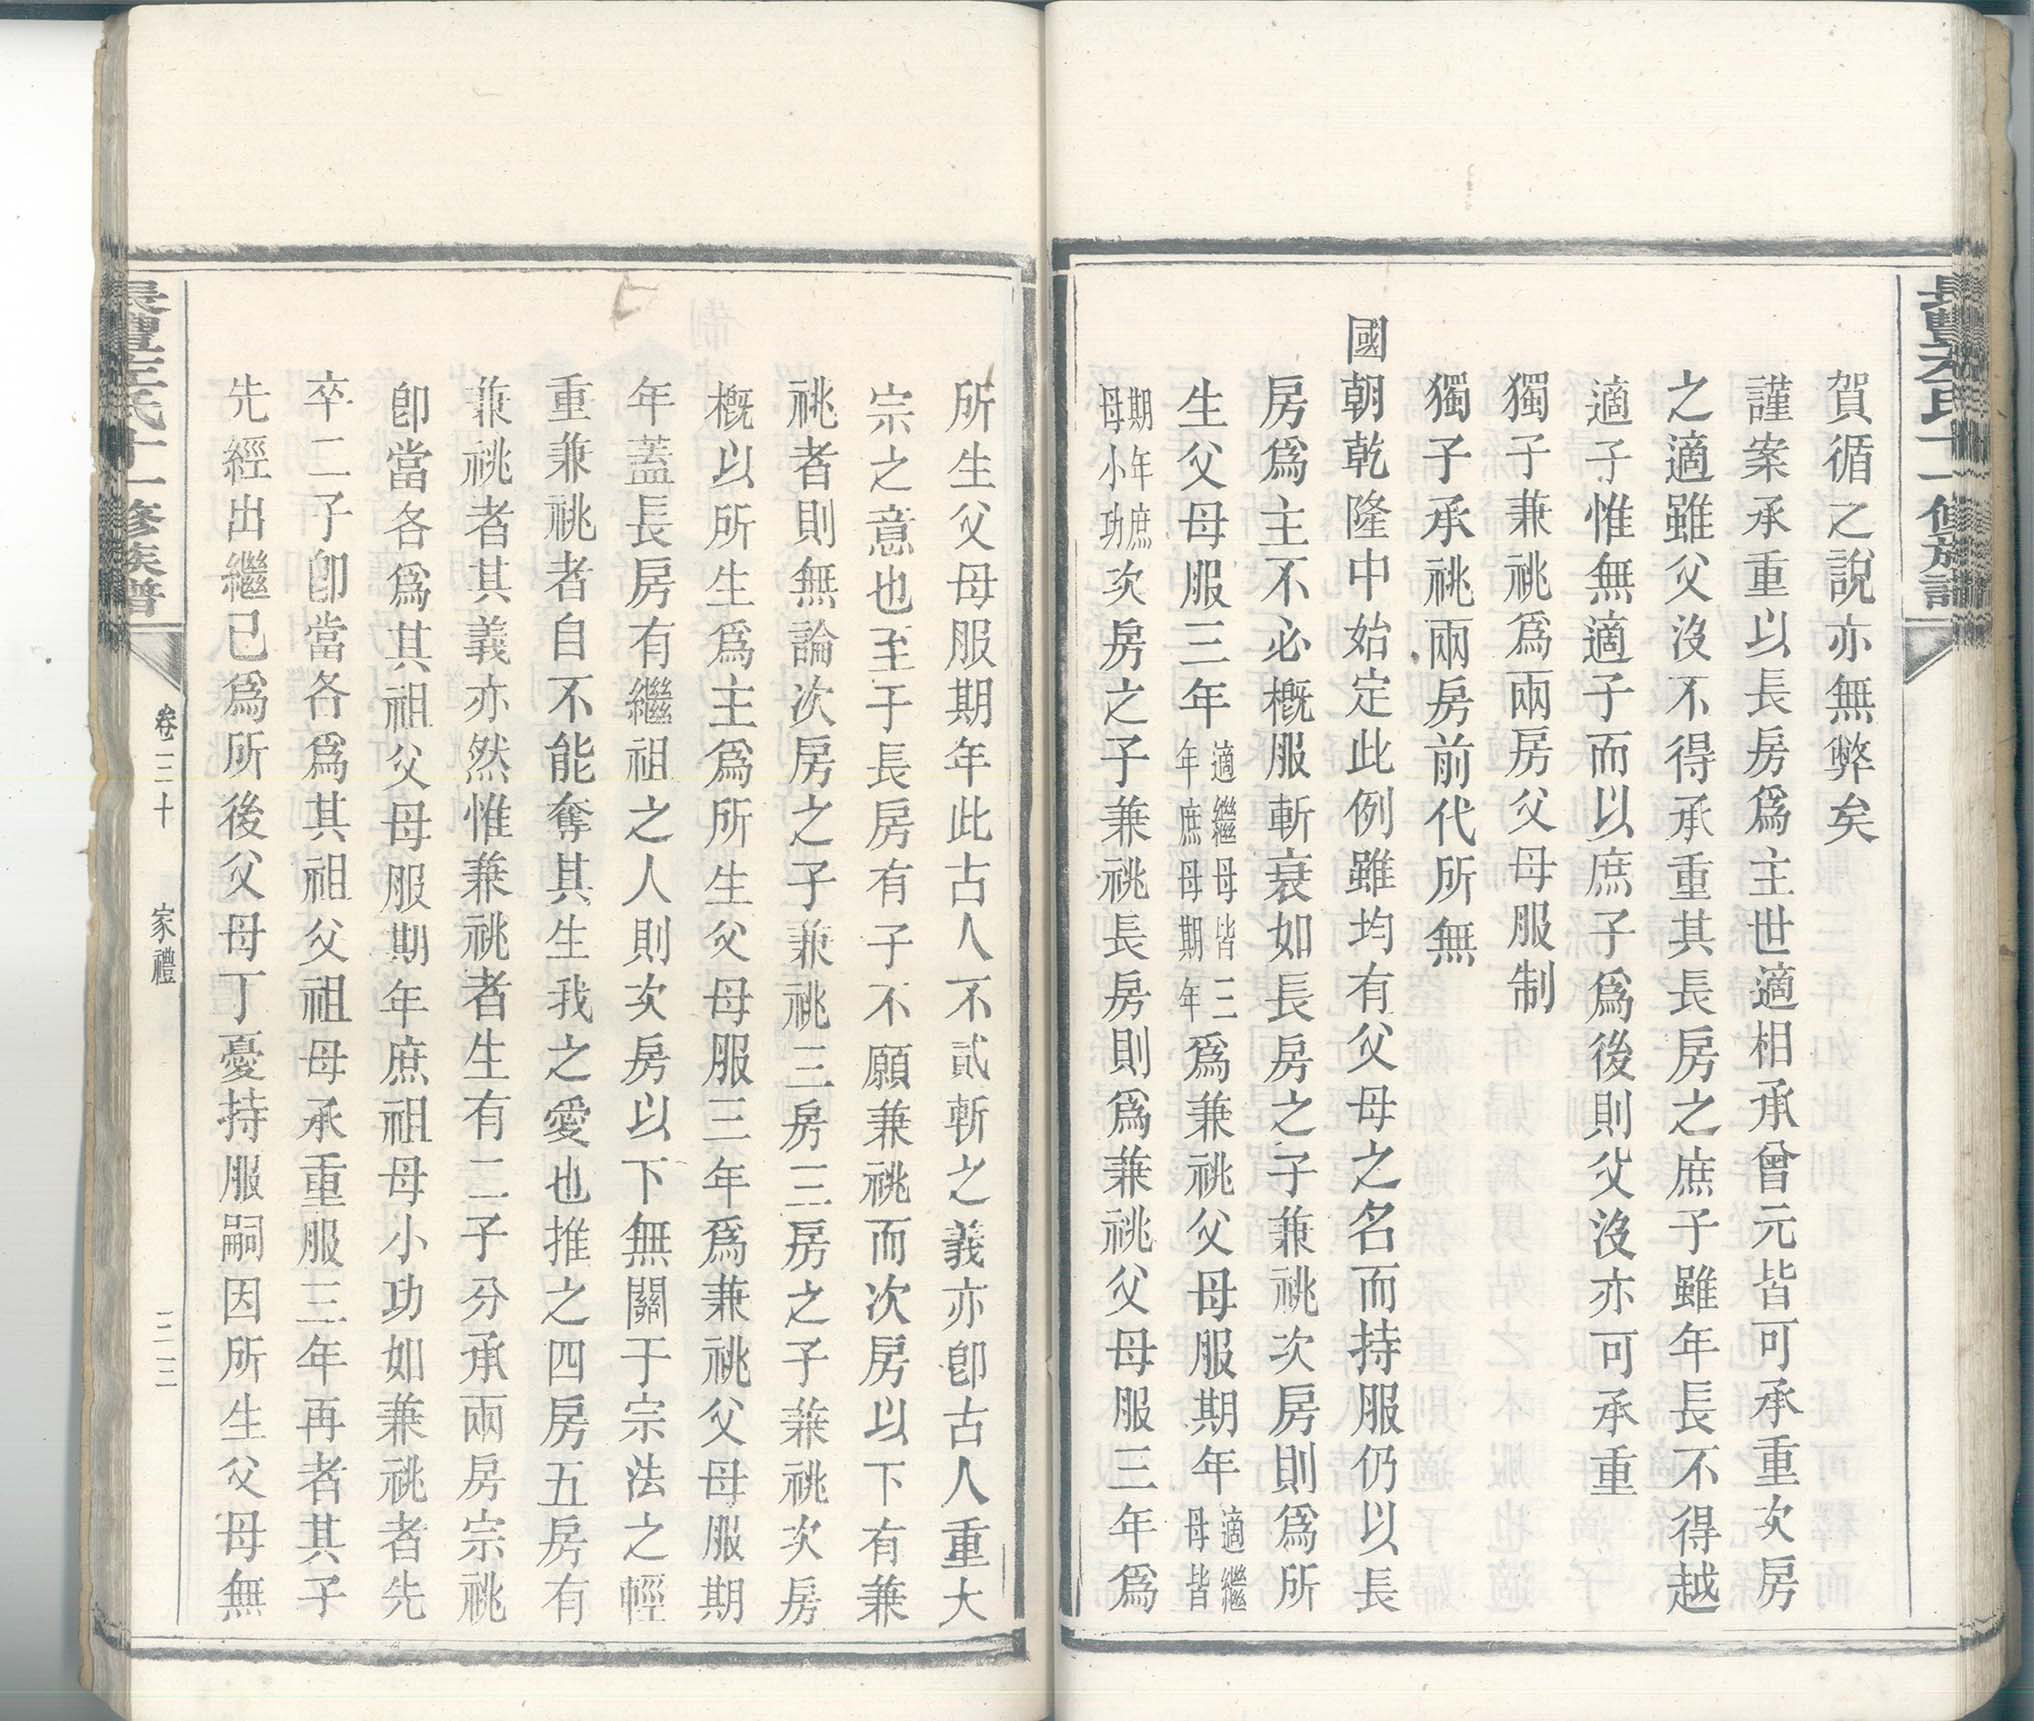 賀循之說亦無弊矣
謹案承重以長房爲主世適相承曾元皆可承重次房
之適雖父沒不得承重其長房之庶子雖年長不得越
適子惟無適子而以庶子爲後則父沒亦可承重
獨子兼祧爲兩房父母服制
獨子承祧兩房前代所無
國朝乾隆中始定此例雖均有父母之名而持服仍以長
房爲主不必概服斬衰如長房之子兼祧次房則爲所
生父母服三年適繼母皆三年庶母期年爲兼祧父母服期年適繼母皆
期年庶母小功次房之子兼祧長房則爲兼祧父母服三年爲
所生父母服期年此古人不貳斬之義亦卽古人重大
宗之意也至于長房有子不願兼祧而次房以下有兼
祧者則無論次房之子兼祧三房三房之子兼祧次房
概以所生爲主爲所生父母服三年爲兼祧父母服期
年蓋長房有繼祖之人則次房以下無關于宗法之輕
重兼祧者自不能奪其生我之愛也推之四房五房有
兼祧者其義亦然惟兼祧者生有二子分承兩房宗祧
卽當各爲其祖父母服期年庶祖母小功如兼祧者先
卒二子卽當各爲其祖父祖母承重服三年再者其子
先經出繼已爲所後父母丁憂持服嗣因所生父母無
卷三十
家禮
三三